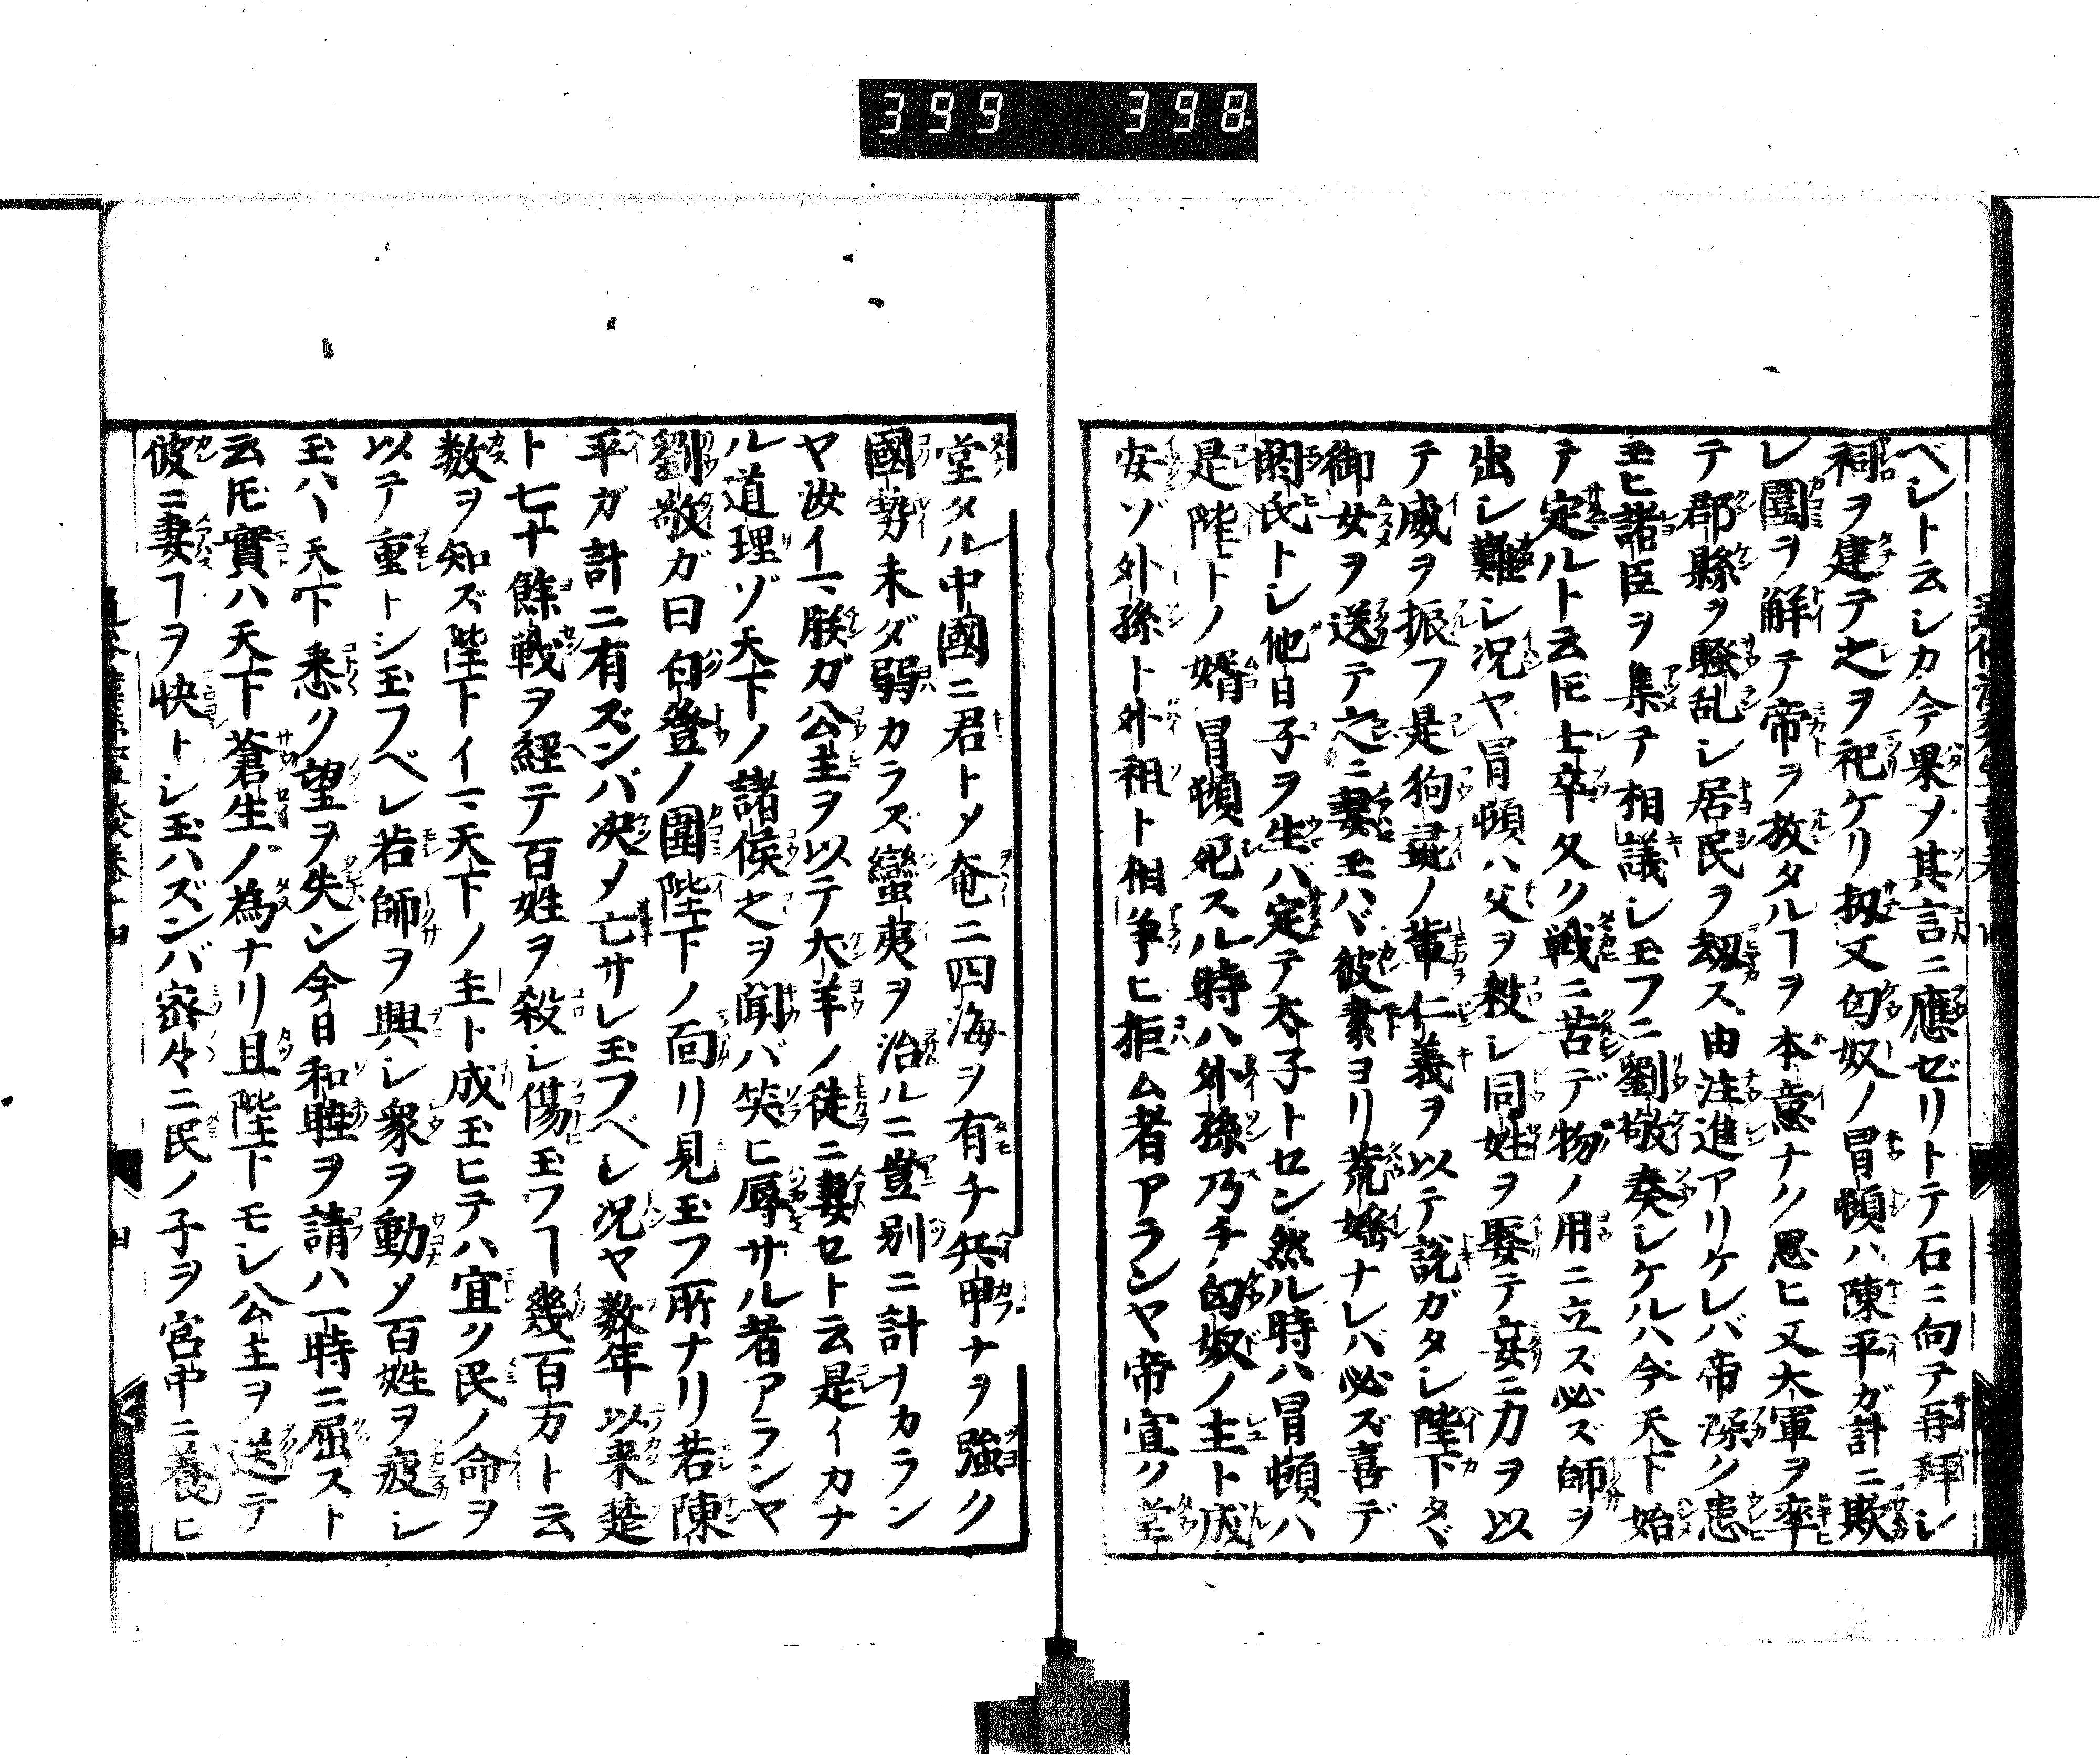 399 398
ベシト云シカ今果メ其言ニ應ゼリトテ石ニ向テ再拜シ
祠ヲ建テ之ヲ祀ケリ扨又匈奴ノ冒頓ハ陳平ガ計ニ欺
レ圍ヲ解テ帝ヲ放タルヿヲ本意ナク思ヒ又大軍ヲ率
テ郡縣ヲ騒乱シ居民ヲ刼ス由注進アリケレバ帝深ク患
玉ヒ諸臣ヲ集テ相議シ玉フニ劉敬奏シケルハ今天下始
テ定ルト云𪜈士卒久ク戦ニ苦デ物ノ用ニ立ズ必ズ師ヲ
出シ難シ况ヤ冒頓ハ父ヲ殺シ同姓ヲ娶テ妄ニ力ヲ以
テ威ヲ振フ是狗彘ノ輩仁義ヲ以テ說ガタシ陛下タヾ
御女ヲ送テ之ニ妻玉ハヾ彼素ヨリ荒婬ナレバ必ズ喜デ
閼氏トシ他日子ヲ生バ定テ太子トセン然ル時ハ冒頓ハ
是陛下ノ婿冒頓死スル時ハ外孫乃チ匈奴ノ主ト成
安ゾ外孫ト外祖ト相争ヒ拒ム者アランヤ帝宣ク堂
堂タル中國ニ君トメ奄ニ四海ヲ有チ兵甲ナヲ強ク
國勢未ダ弱カラズ蠻夷ヲ治ルニ豈別ニ計ナカラン
ヤ汝イマ朕ガ公主ヲ以テ犬羊ノ徒ニ妻セト云是イカナ
ル道理ゾ天下ノ諸侯之ヲ聞バ笑ヒ辱サル者アランヤ
劉敬ガ曰白登ノ圍陛下ノ面リ見玉フ所ナリ若陳
平ガ計ニ有ズンバ决メ亡サレ玉フベシ况ヤ数年以来楚
ト七十餘戦ヲ経テ百姓ヲ殺シ傷玉フヿ幾百万ト云
数ヲ知ズ陛下イマ天下ノ主ト成玉ヒテハ宜ク民ノ命ヲ
以テ重トシ玉フベシ若師ヲ興シ衆ヲ動メ百姓ヲ疲シ
玉ハヽ天下悉ク望ヲ失ン今日和睦ヲ請ハ一時ニ屈スト
云𪜈實ハ天下蒼生ノ為ナリ且陛下モシ公主ヲ送テ
彼ニ妻ヿヲ快トシ玉ハズンバ密々ニ民ノ子ヲ宮中ニ養ヒ